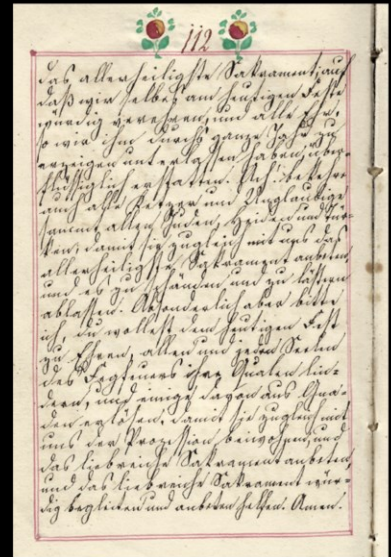 112
das allerheiligste Sakrament; auf
daß wir selbes am heutigen Feste
würdig verehren, und alle Ehr,
so wir ihm durchs ganze Jahr zu
erzeigen unterlassen haben, über-
flüssiglich erstatten. Ach! bekehre
auch alle Ketzer und Unglaubige
sammt allen Juden, Heiden und Tür-
ken, damit sie zugleich mit uns das
allerheiligste Sakrament anbeten,
und es zu schänden und zu lästern
ablassen. Absonderlich aber bitte
ich, du wollest dem heutigen Fest
zu Ehren, allen und jeden Seelen
des Fegfeuers ihre Qualen lin-
dern, und einige davon aus Gna-
den erlösen, damit sie zugleich mit
uns der Prozession beiwohnen, und
das liebreiche Sakrament anbeten,
und das liebreiche Sakrament wür-
dig begleiten und anbeten helfen. Amen.